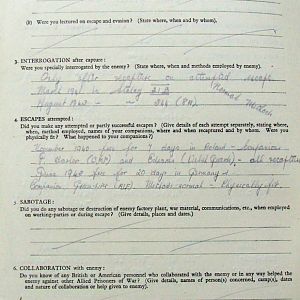 (b) Were you lectured on escape and evasion? (State where, when and by whom).
3. INTERROGATION after capture:
Were you specially interrogated by the enemy? (State where, when and methods employed by enemy).
Only after recapture on attempted escape
March 1941 in Stalag
Normal Methods
August 1942
4. ESCAPES attempted:
Did you make any attempted or partly successful escapes? (Give details of each attempt separately, stating where, when, method employed, names of your companions, where and when recaptured and by whom. Were you physically fit? What happened to your companions?)
November 1940 free for days in Poland - Companions
and Edwards (Welsh Guards) - all recaptured
June 1942 free for 20 days in Germany -
Companion Methods normal - Physically fit
5. SABOTAGE:
Did you do any sabotage or destruction of enemy factory plant, war material, communications, etc., when employed on working-parties or during escape? (Give details, places and dates.)
6. COLLABORATION with enemy:
Do you know of any British or American personnel who collaborated with the enemy or in any way helped the enemy against other Allied Prisoners of War? (Give details, names of person(s) concerned, camp(s), dates and nature of collaboration or help given to enemy).